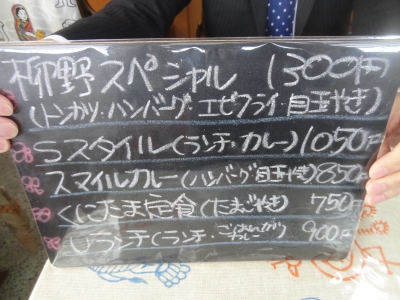 柳野スペシャル 1300円
(トンカツ・ハンバーグ・エビフライ・目玉やき)
Sスタイル(ランチ・カレー)1050円
スマイルカレー(ハンバーグ目玉やき)850円
くにたま定食(たまごやき) 750円
Uランチ(ランチ・ごはんがカレー) 900円